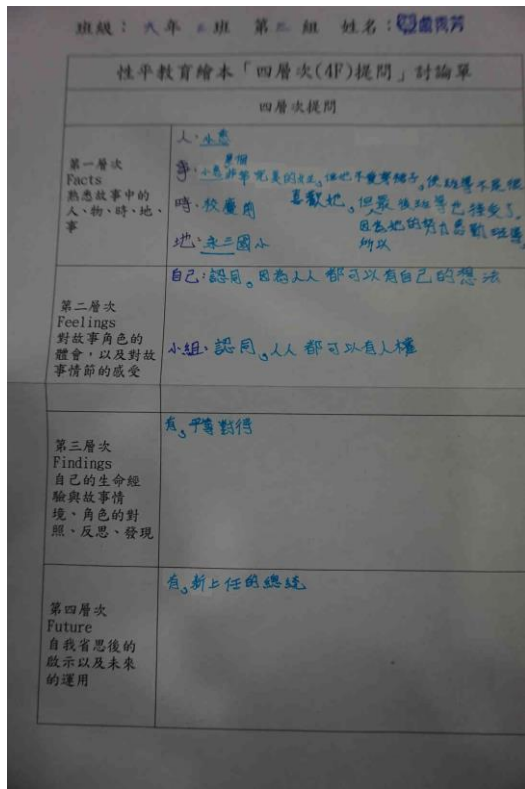 班級：六年二班 第三組 姓名：盧秀芳
性平教育繪本「四層次(4F)提問」討論單
四層次提問
第一層次
Facts
熟悉故事中的
人、物、時、地、
事
人：小惠
事：小惠是個非常完美的女生，但他不愛穿裙子，使班導不是很
喜歡她，但最後班導也接受了，
因為她的努力感動班導，
所以
時：校慶前
地：永三國小
第二層次
Feelings
對故事角色的
體會，以及對故
事情節的感受
自己：認同。因為人人都可以有自己的想法
小組：認同。人人都可以有人權
第三層次
Findings
自己的生命經
驗與故事情
境、角色的對
照、反思、發現
有。平等對待
第四層次
Future
自我省思後的
啟示以及未來
的運用
有。新上任的總統